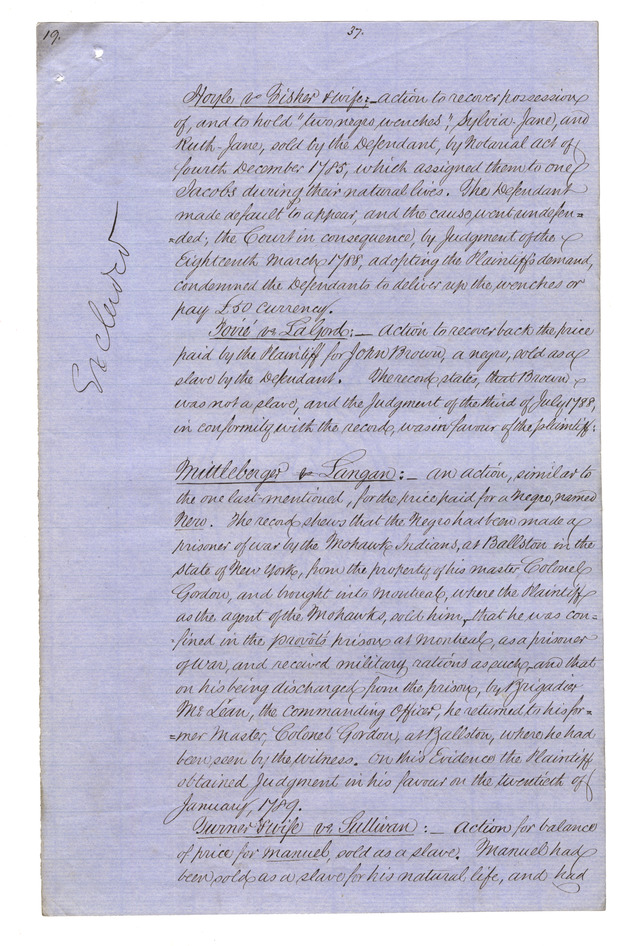 19.
37.
Hoyle vs Fisher & wife:_ action to recover possession
of, and to hold "two negro wenches", Sylvia-Jane, and
Ruth-Jane, sold by the Defendant, by Notarial act of
fourth December 1785, which assigned them to one
Jacobs during their natural lives. The Defendant
made default to appear, and the cause went undefen=
=ded; the Court in consequence, by Judgment of the
Eighteenth March 1788, adopting the Plaintiff's demand,
condemned the Defendants to deliver up the wenches or
pay £50 currency.
vs :_ Action to recover back the price
paid by the Plaintiff for John Brown, a negro, sold as a
slave by the Defendant. The record states, that Brown
was not a slave, and the Judgment of the third of July 1788,
in conformity with the record, was in favour of the plaintiff:
Mittleberger vs Langan:_ an action, similar to
the one last mentioned, for the price paid for a Negro, named
Nero. The record shews that the Negro had been made a
prisoner of war by the Mohawk Indians, at Ballston in the
state of New York, from the property of his master Colonel
Gordon, and brought into Montreal, where the Plaintiff
as the agent of the Mohawks, sold him, that he was con=
fined in the provôts prison at Montreal, as a prisoner
of war, and received military rations as such, and that
on his being discharged from the prison, by Brigadier
Mc Lean, the commanding Officer, he returned to his for=
=mer Master, Colonel Gordon, at Ballston, where he had
been seen by the witness. On this Evidence the Plaintiff
obtained Judgment in his favour on the twentieth of
January, 1789.
Turner & wife vs Sullivan:_ Action for balance
of price for Manuel, sold as a slave. Manuel had
been sold as a slave for his natural life, and had
Excluded